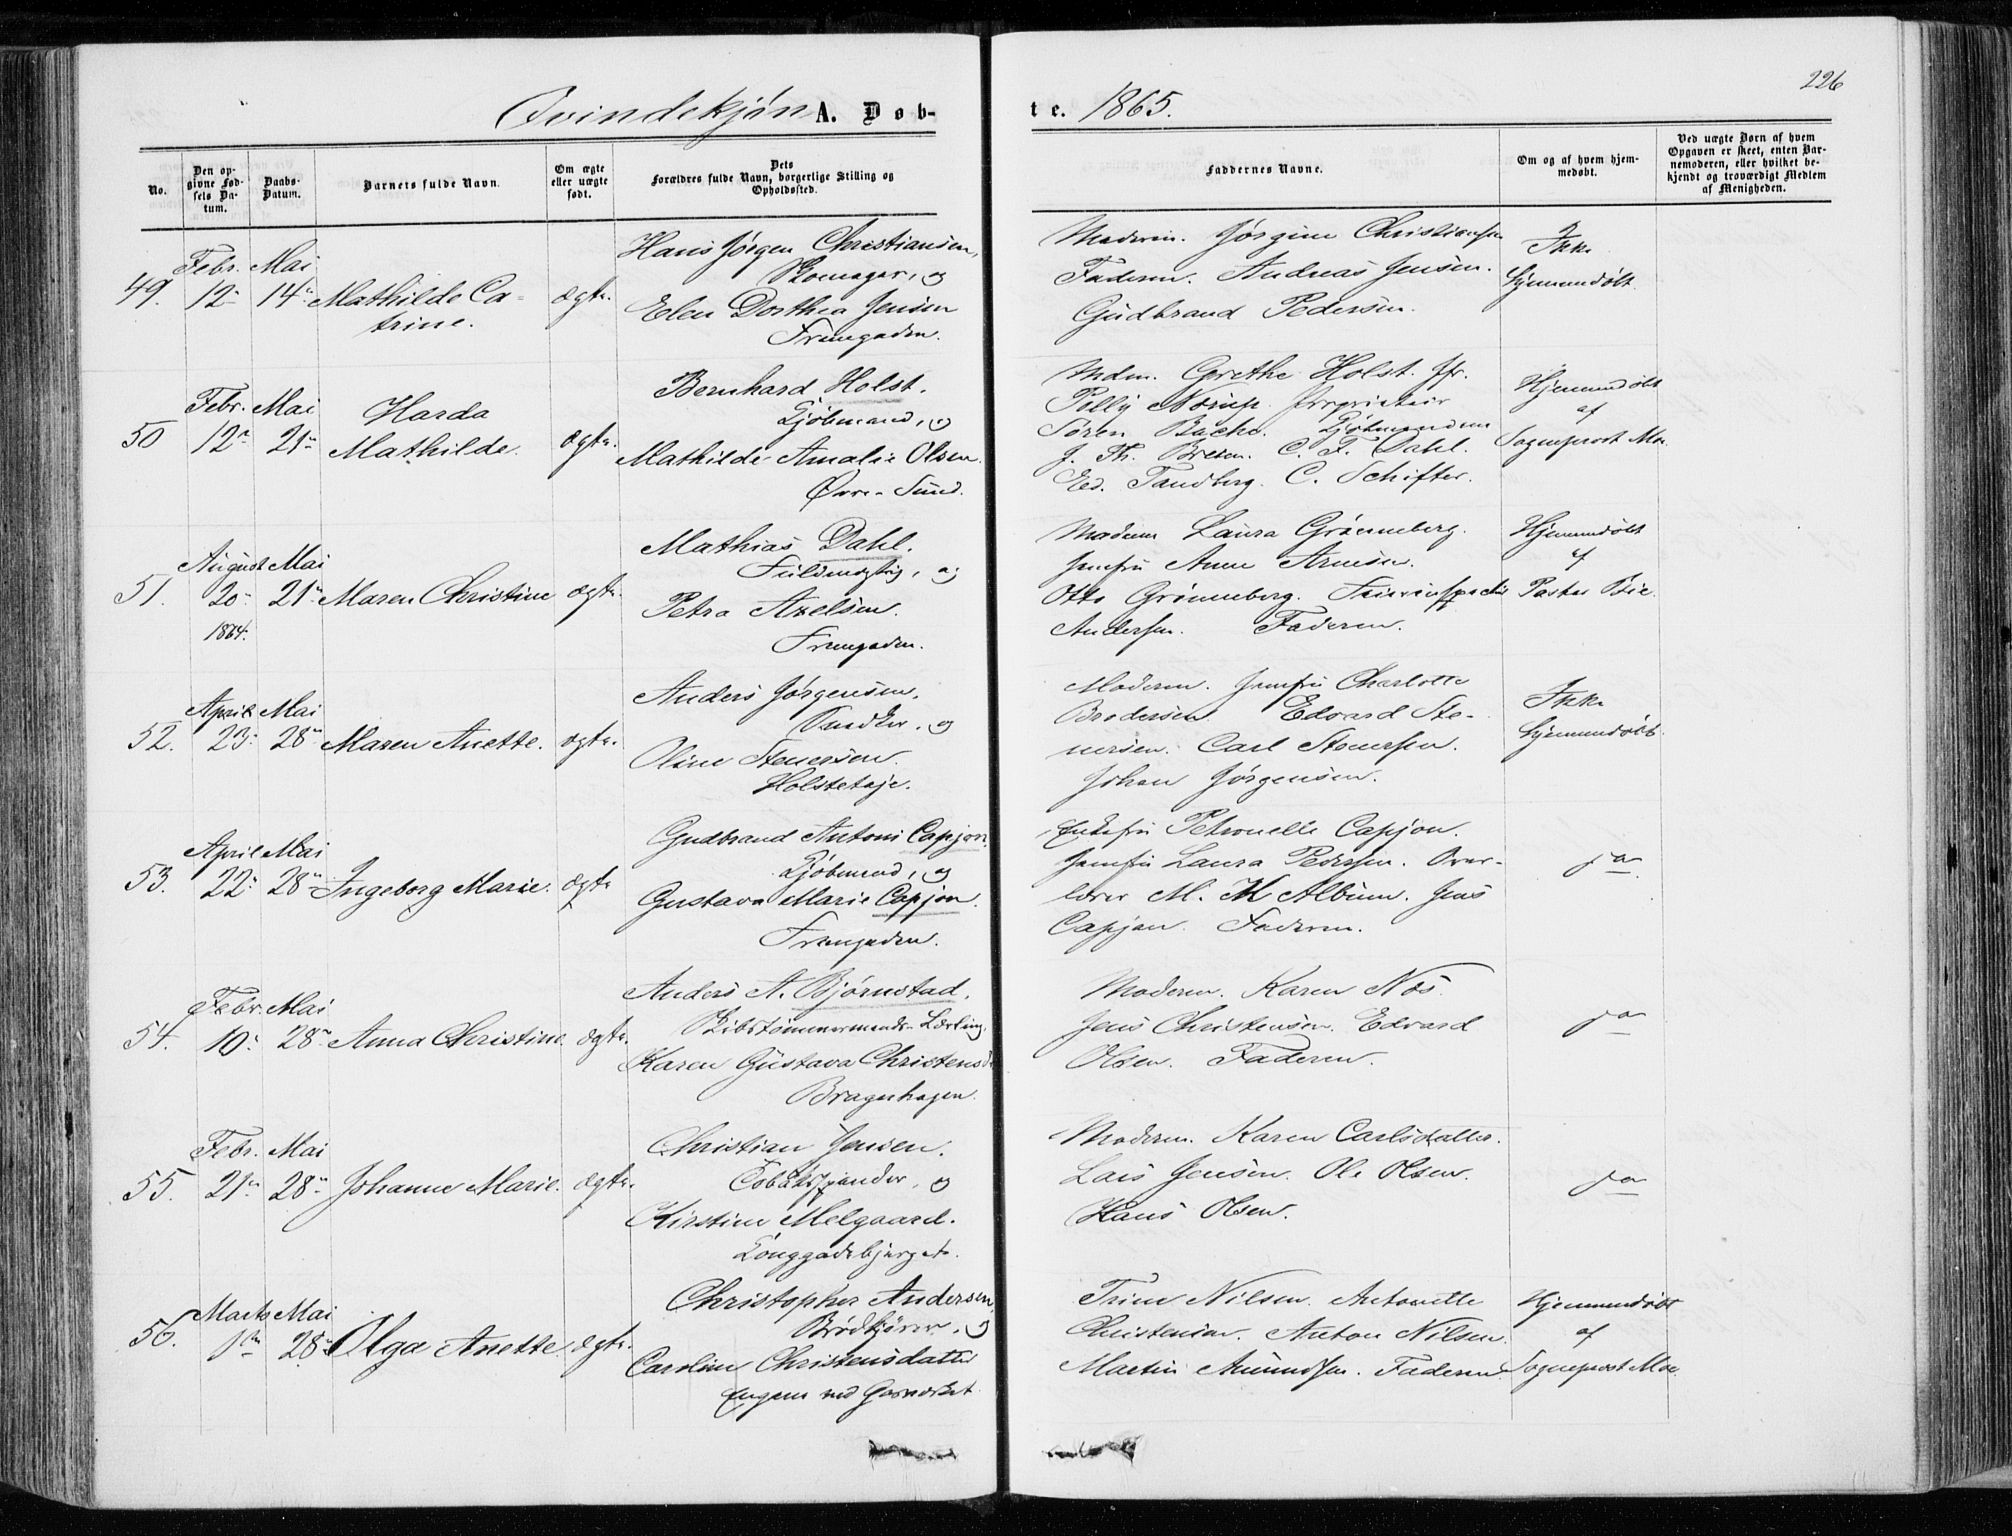 226
Qvindekjøn A. Døb-
te. 1865.
No.
Den op-
givne Fød-
sels Da-
tum.
Daabs-
Datum.
Barnets fulde Navn.
Om ægte
eller uægte
født.
Dets
Forældres fulde Navn, borgerlige Stilling og
Opholdssted.
Faddernes Navne.
Om og af hvem hjem-
medøbt.
Ved uægte Børn af hvem
Opgaven er skeet, enten Bar-
nemoderen, eller hvilket be-
kjendt og troværdigt Medlem
af Menigheden.
49.
Febr.
12
Mai
14
Mathilde Ca-
trine.
ægte.
Hans Jørgen Christiansen,
Skomager, og
Elen Dorthea Jensen
Frimgaden.
Moderen. Jørgine Christiansen
Faderen. Andreas Jensen.
Gudbrand Pedersen.
Ikke
Hjemmedøbt
50
Febr.
12
Mai
21
Harda
Mathilde.
ægte.
Bernhard Holst.
Kjøbmand, og
Mathilde Amalie Olsen.
Øvre-Sund.
Mdm. Grethe Holst. Jfr.
Pelly Nørup. Proprietair
Søren Bache. Kjøbmændene
J. Th. Bresen. C. F. Dahl.
Ed. Tandberg. C. Schifter.
Hjemmedøbt
af
Sogneprest Moe
51.
August
20
1864.
Mai
21
Maren Christine
ægte.
Mathias Dahl.
Fuldmægtig, og
Petra Axelsen.
Frimgaden.
Madam Laura Grønneberg.
Jomfru Anne Arnesen.
Otto Grønneberg.
Andersen. Faderen.
Hjemmedøbt
af
Pastor Bie.
52.
April
23
Mai
28
Maren Anette.
ægte.
Anders Jørgensen.
Snedker, og
Oline Stenersen.
Holsteteje.
Moderen. Jomfru Charlotte
Brodersen. Edvard Ste-
nersen. Carl Stenersen.
Johan Jørgensen.
Ikke
hjemmedøbt.
53.
April
22
Mai
28
Ingeborg Marie.
ægte
Gudbrand Antoni Capjon.
Kjøbmand, og
Gustava Marie Capjon.
Frimgaden.
Enkefru Petronelle Capjon.
Jomfru Laura Pedersen. Over-
lærer M. M Album. Jens
Capjon. Faderen.
ja
54.
Febr.
10
Mai
28
Anna Christine.
ægte.
Anders A. Bjørnstad.
Skibstømmermands-Lærling.
Karen Gustava Christensd.
Bragerhagen.
Moderen. Karen Nøs.
Jens Christensen. Edvard
Olsen. Faderen.
ja
55.
Febr.
21
Mai
28
Johanne Marie.
ægte.
Christian Jensen.
Tobakspinder, og
Kirstine Melgaard.
Konggadebjerget.
Moderen. Karen Carlsdatter.
Lars Jensen. Ole Olsen.
Hans Olsen.
ja
56.
Marts
1
Mai
28
Olga Anette
ægte.
Christopher Andersen
Brødkjører, og
Caroline Christensdatter
Engene ved Gasverket.
Trine Nilsen. Antonette
Christensen. Anton Nilsen.
Martin Amundsen. Faderen
Hjemmedøbt
af
Sogneprest Moe